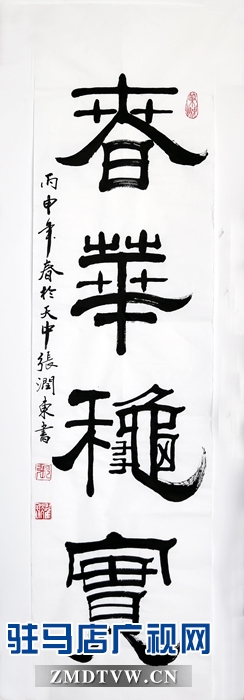 春華穐實
丙申年春於天中張潤東書
驻马店广视网
ZMDTVW.CN